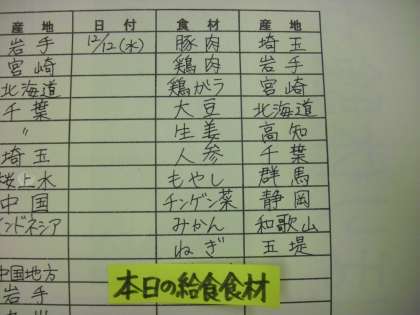 産地 日付 食材 産地
岩手 12/12(水) 豚肉 埼玉
宮崎 鶏肉 岩手
北海道 鶏ガラ 宮崎
千葉 大豆 北海道
〃 生姜 高知
埼玉 人参 千葉
桜上水 もやし 群馬
中国 チンゲン菜 静岡
インドネシア みかん 和歌山
ねぎ 五堤
中国地方
岩手
本日の給食食材